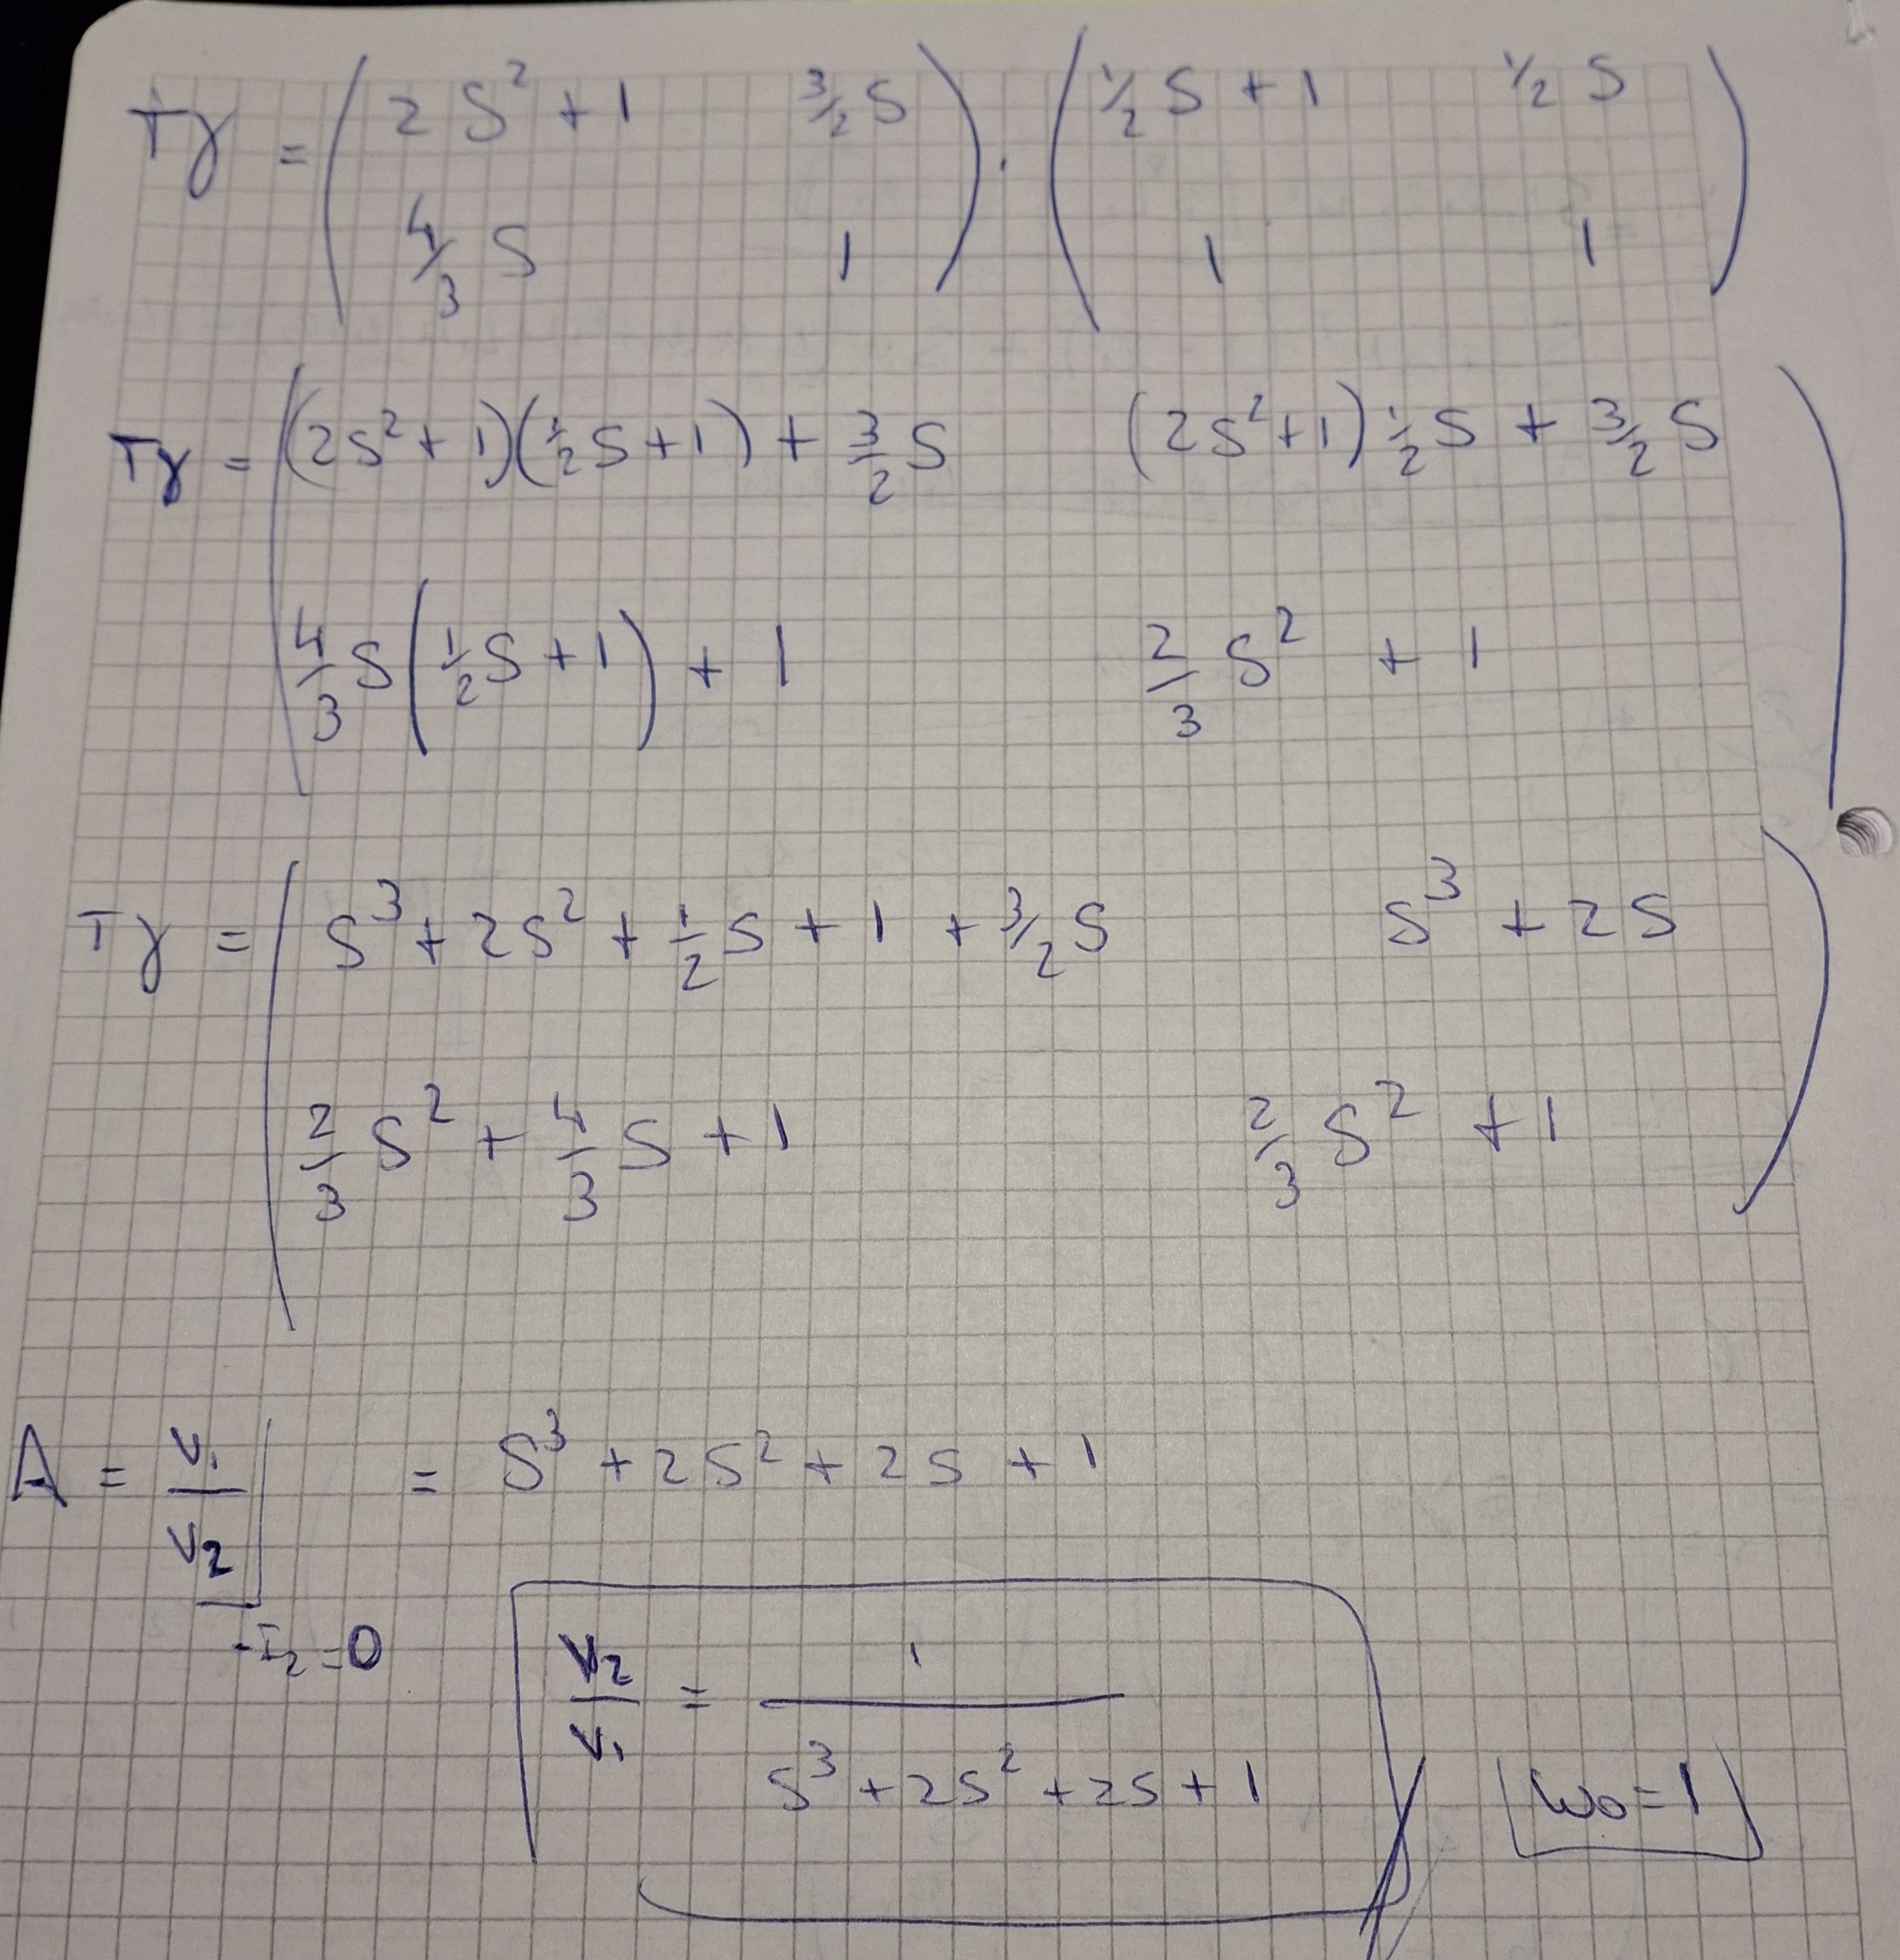 Tγ = ( 2S² + 1   3/2 S ) · ( 1/2 S + 1   1/2 S )
4/3 S   1   1   1
Tγ = ( (2S² + 1)(1/2 S + 1) + 3/2 S   (2S² + 1) 1/2 S + 3/2 S )
4/3 S (1/2 S + 1) + 1   2/3 S² + 1
Tγ = ( S³ + 2S² + 1/2 S + 1 + 3/2 S   S³ + 2S )
2/3 S² + 4/3 S + 1   2/3 S² + 1
A = V₁/V₂ | = S³ + 2S² + 2S + 1
-I₂ = 0
V₂/V₁ = 1/(S³ + 2S² + 2S + 1)   ω₀ = 1